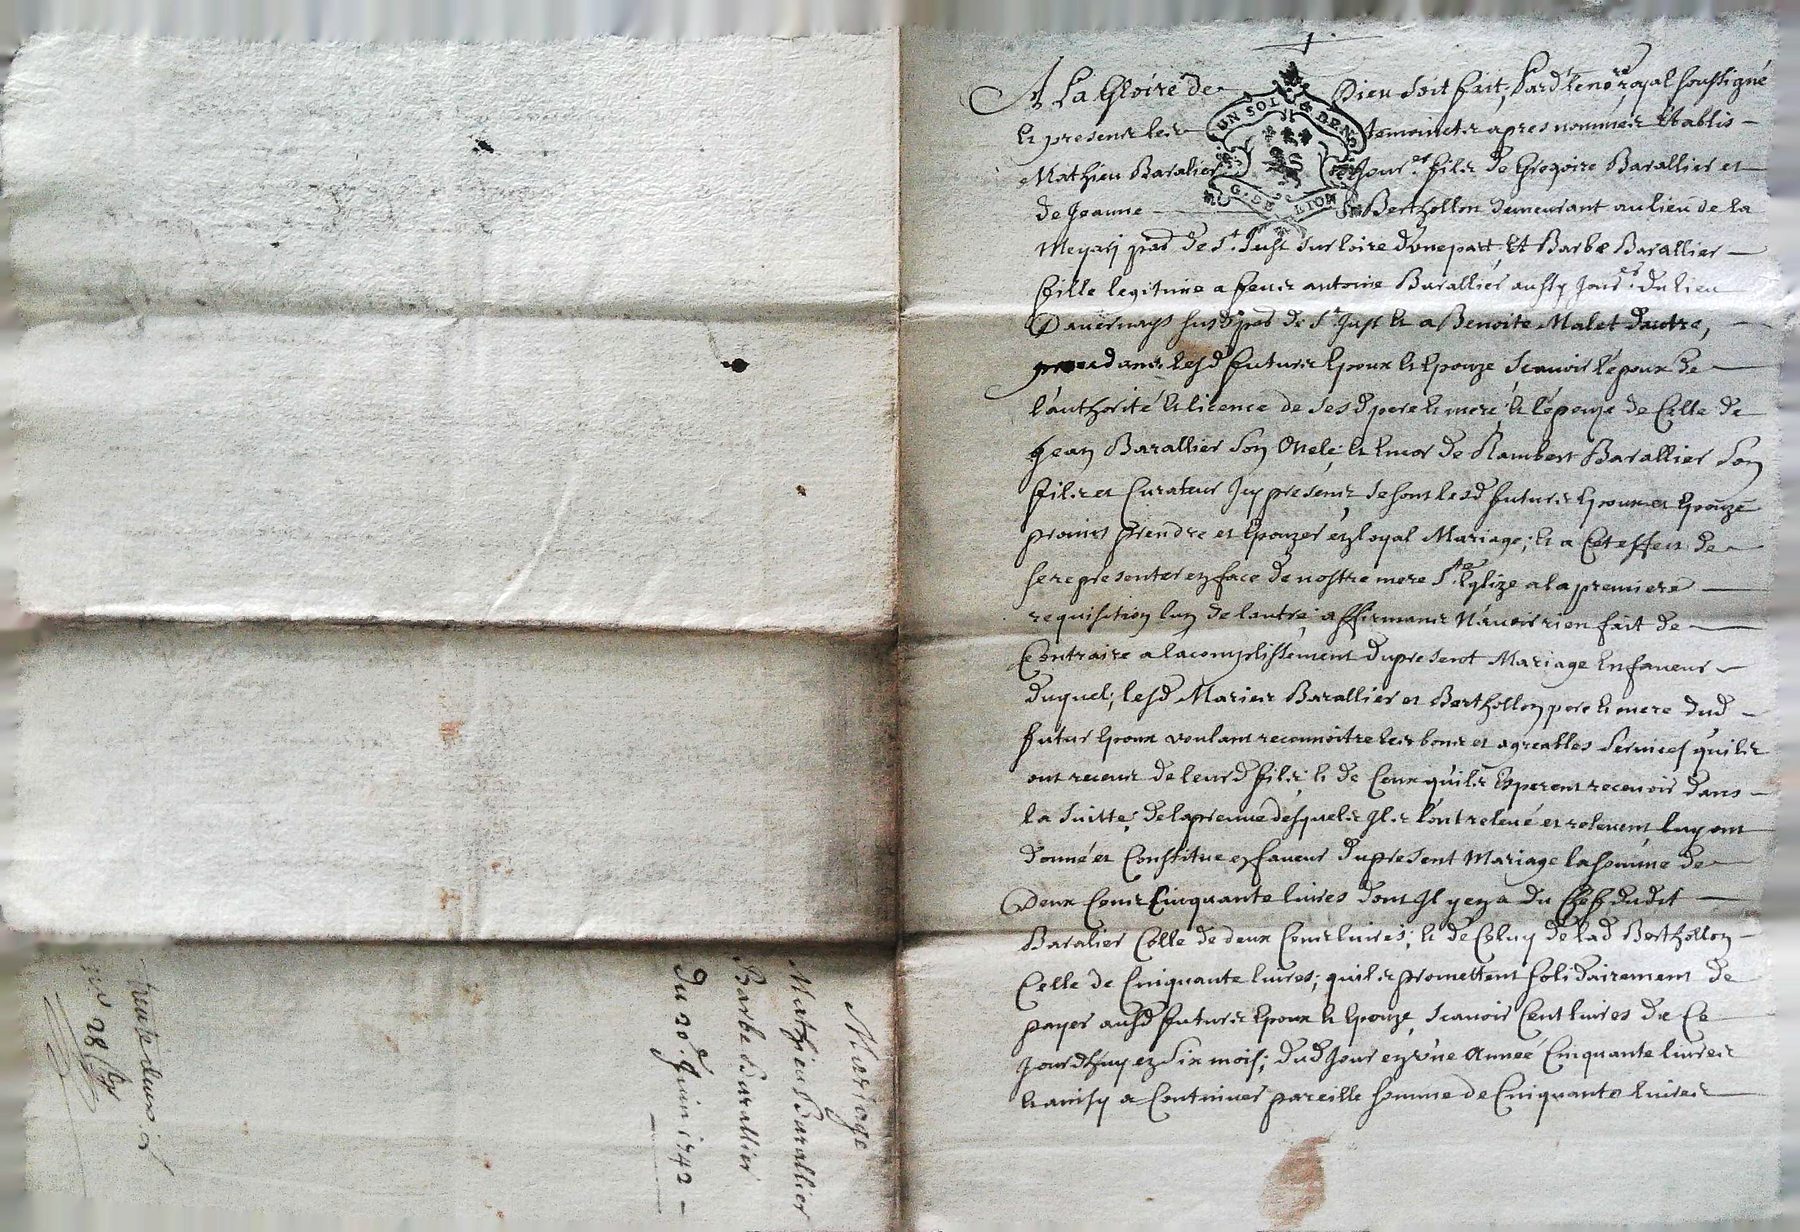 Mariage
Mathieu Barallier
Barbe Barallier
Du 20.e Juin 1742
trente deux
no 28
UN SOL & DEN.
G. DE LION
A La Gloire de Dieu Soit fait, Pard.t le no.re royal soussigné
et presents les temoints cy apres nommés Etablis
Mathieu Baralier Jour.er fils de Gregoire Barallier et
de Jeanne Berthollon demeurant au lieu de la
Meyary par de St. Just sur loire d'une part, Et Barbe Barallier
fille legitime a feus antoine Barallier aussy Jour.er du lieu
Davernays susd par de St Just et a Benoite Malet dautre,
lesd futurs Epoux et Epouze Scauoir l'époux de
l'authorité et licence de ses d pere et mere, et l'épouze de Celle de
Jean Barallier Son Oncle, et de Rambert Barallier Son
fils et Curateur Jcy presents, Se sont lesd futurs Epoux et Epouze
promis prendre et Epouzer en loyal Mariage; et a Cet effect de
se representer en face de nostre mere Ste Eglize a la premiere
requisition lun de lautre, affirmants N'auoir rien fait de
Contraire a lacomplissement du present Mariage En faueur
duquel; lesd Mariés Barallier et Berthollon pere et mere dud
futur Epoux voulant reconnoitre les bons et agreables Seruices quils
ont receus de leurd fils, et de Ceux quils Esperent receuoir dans
la Suitte, de la preuue desquels Jls l'ont releué et releuent luy ont
donné et Constitue en faueur du present Mariage la somme de
Deux Cents Cinquante liures dont Jl y en a du Chef dudit
Baralier Celle de deux Cents liures; et de Celuy de lad Berthollon
Celle de Cinquante liures; quils promettent solidairement de
payer ausd futurs Epoux et Epouze, Scauoir Cent liures de Ce
Jourdhuy en Six mois; dud Jour en Vne Année Cinquante liures
et ainsy a Continuer pareille somme de Cinquante liures